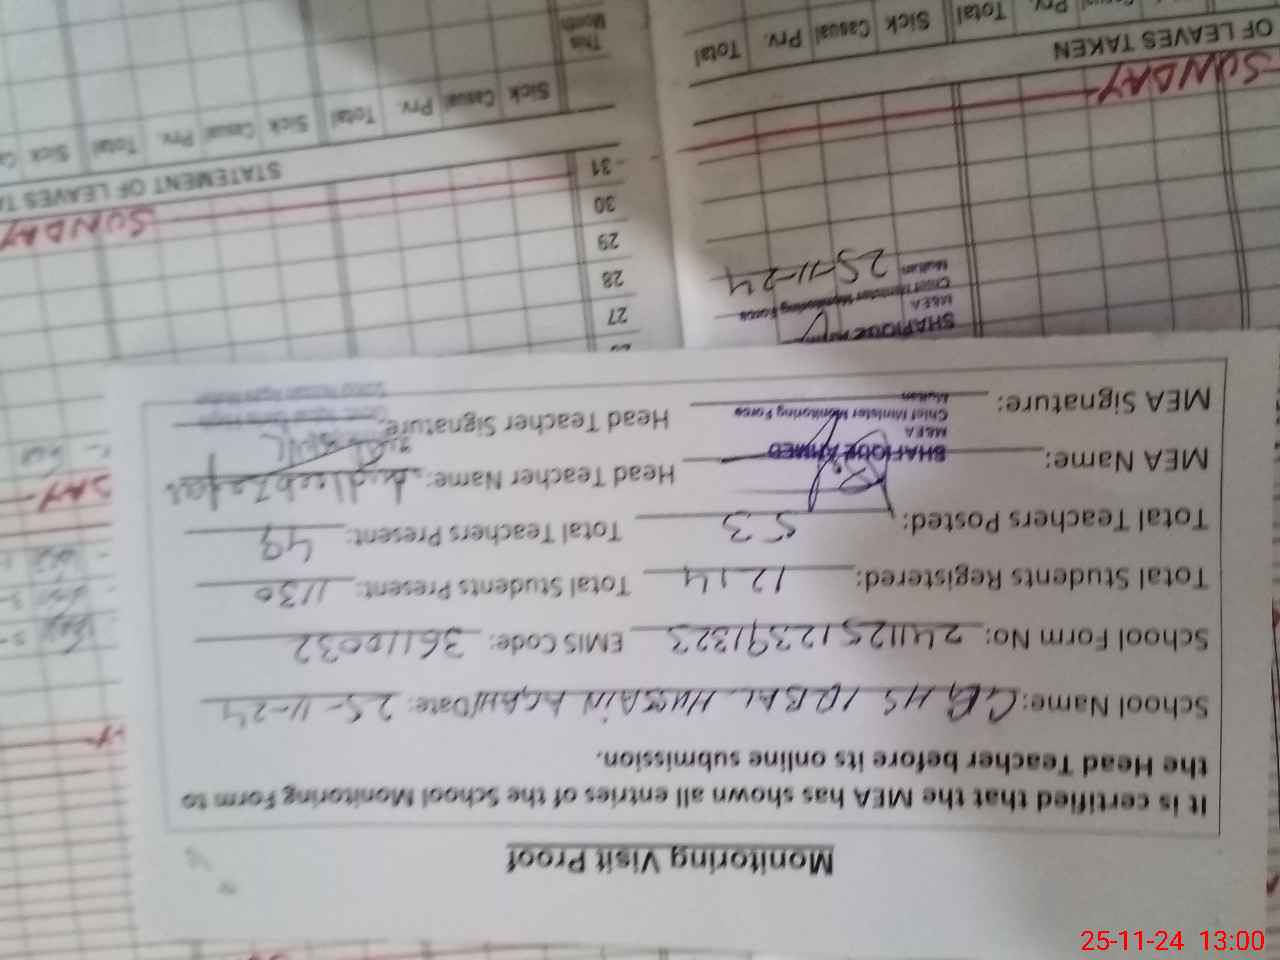 Monitoring Visit Proof
It is certified that the MEA has shown all entries of the School Monitoring Form to
the Head Teacher before its online submission.
School Name: GGHS IQBAL HUSSAIN AGAHI Date: 25-11-24
School Form No: 24112512391323 EMIS Code: 36110032
Total Students Registered: 1214 Total Students Present: 1130
Total Teachers Posted: 53 Total Teachers Present: 49
MEA Name: Head Teacher Name: Andleeb Zafar
SHAFIQUE AHMED
M&EA
Chief Minister Monitoring Force
Multan
MEA Signature: Head Teacher Signature:
SHAFIQUE
M&EA
Chief Minister Monitoring Force
Multan
25-11-24
27
28
29
30
31
SUNDAY
SUNDAY
STATEMENT OF LEAVES
OF LEAVES TAKEN
Sick Casual Prv. Total Sick Casual Prv. Total Sick
This Month
Total Prv. Casual Sick Total Prv.
25-11-24 13:00